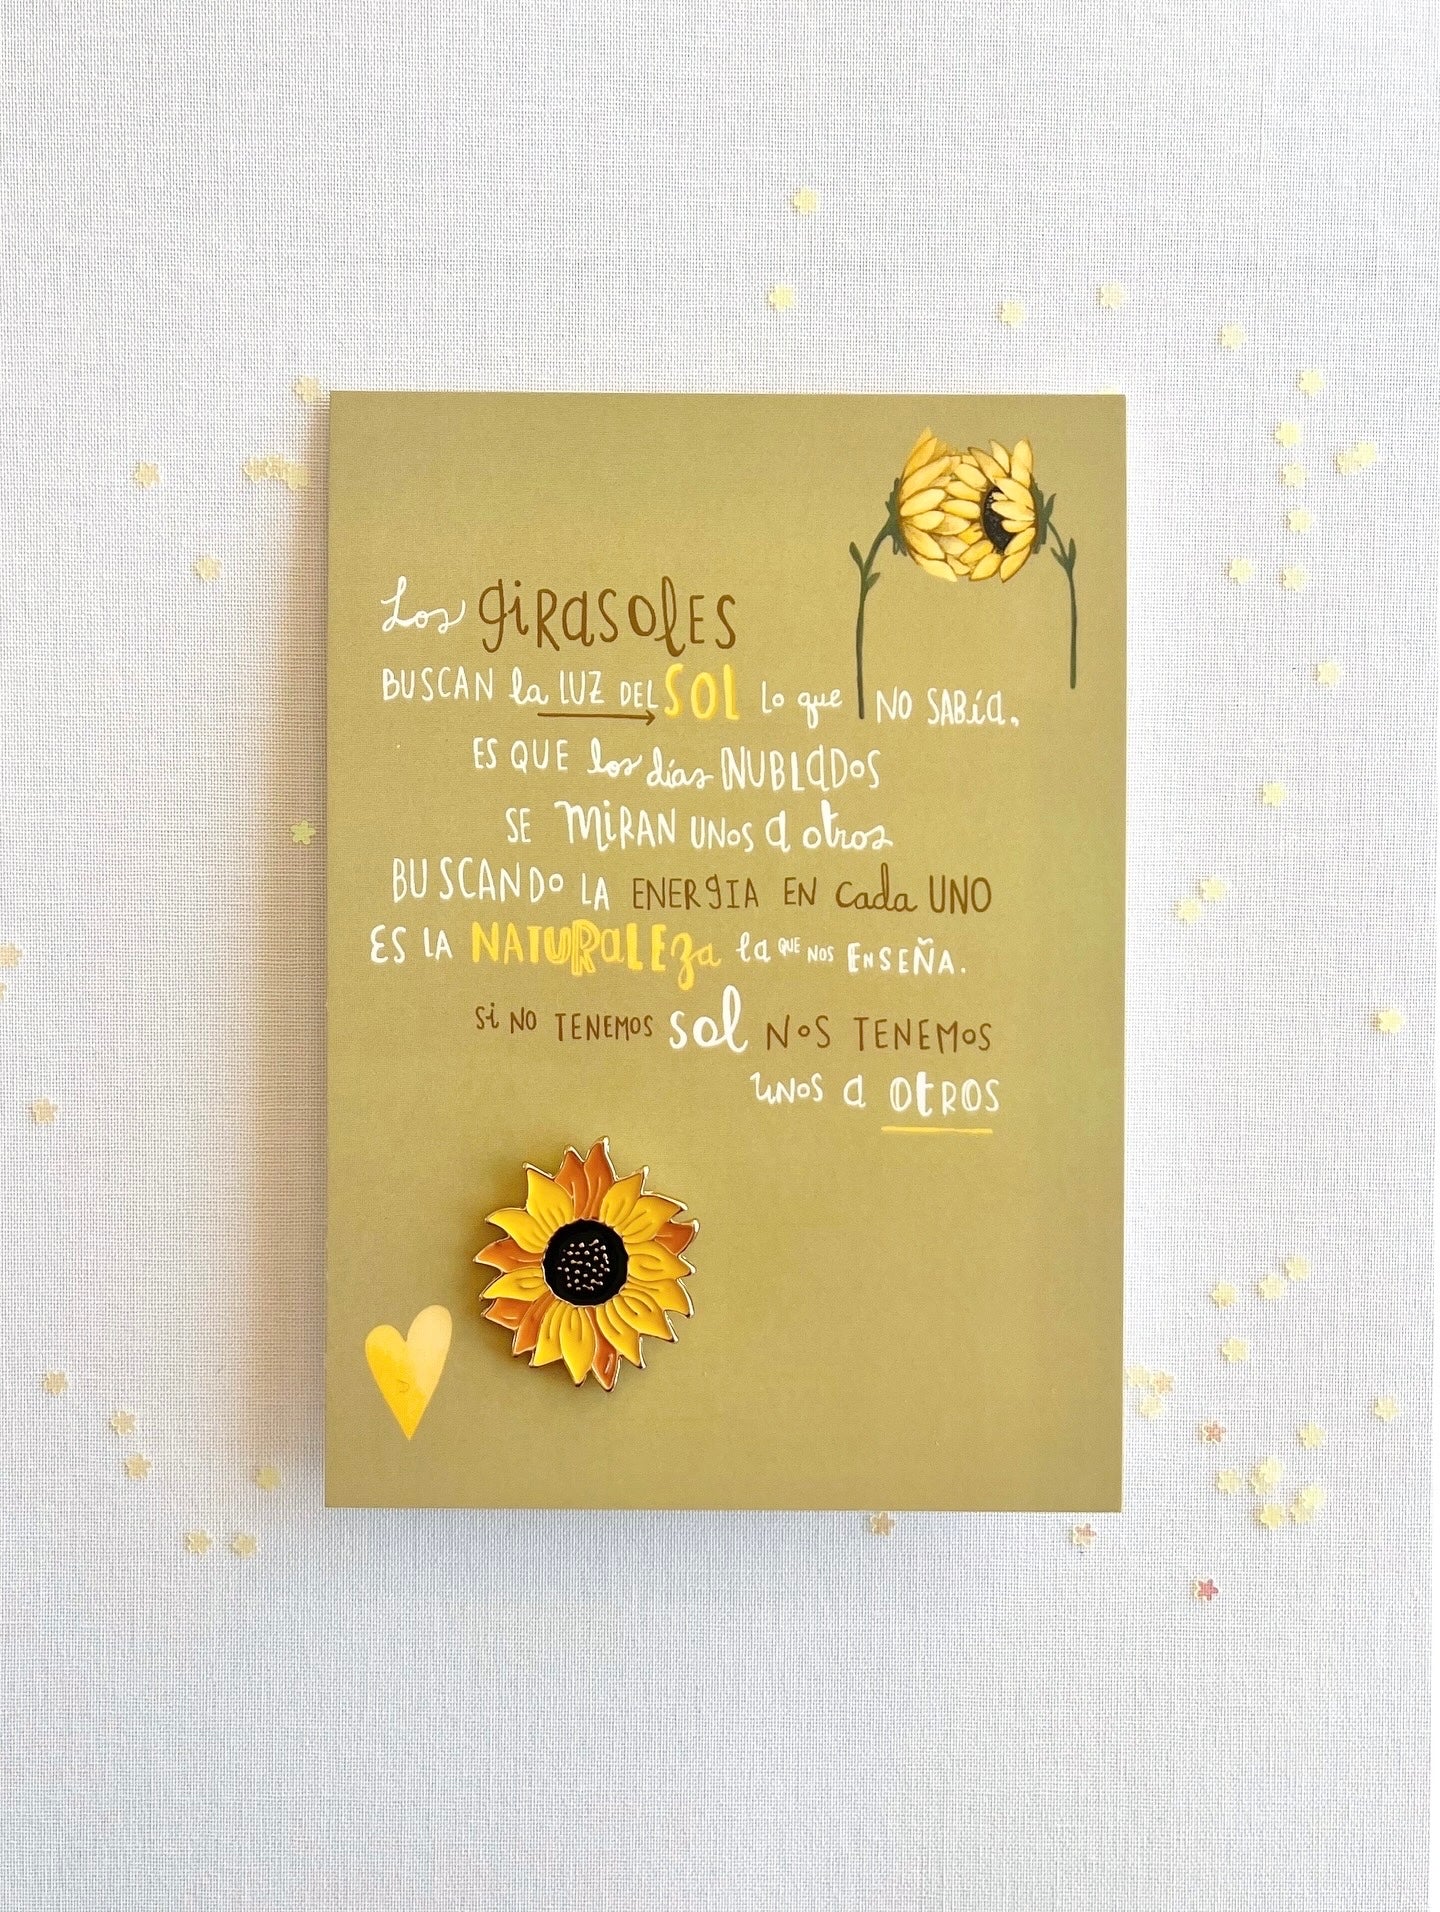 Los GIRASOLES
BUSCAN la LUZ DEL SOL Lo que NO SABíA,
ES QUE los días NUBLADOS
SE MIRAN UNOS A otros
BUSCANDO LA ENERGIA EN cada UNO
ES LA NATURALEZA la QUE NOS ENSEÑA.
Si NO TENEMOS sol NOS TENEMOS
UNOS A OTROS